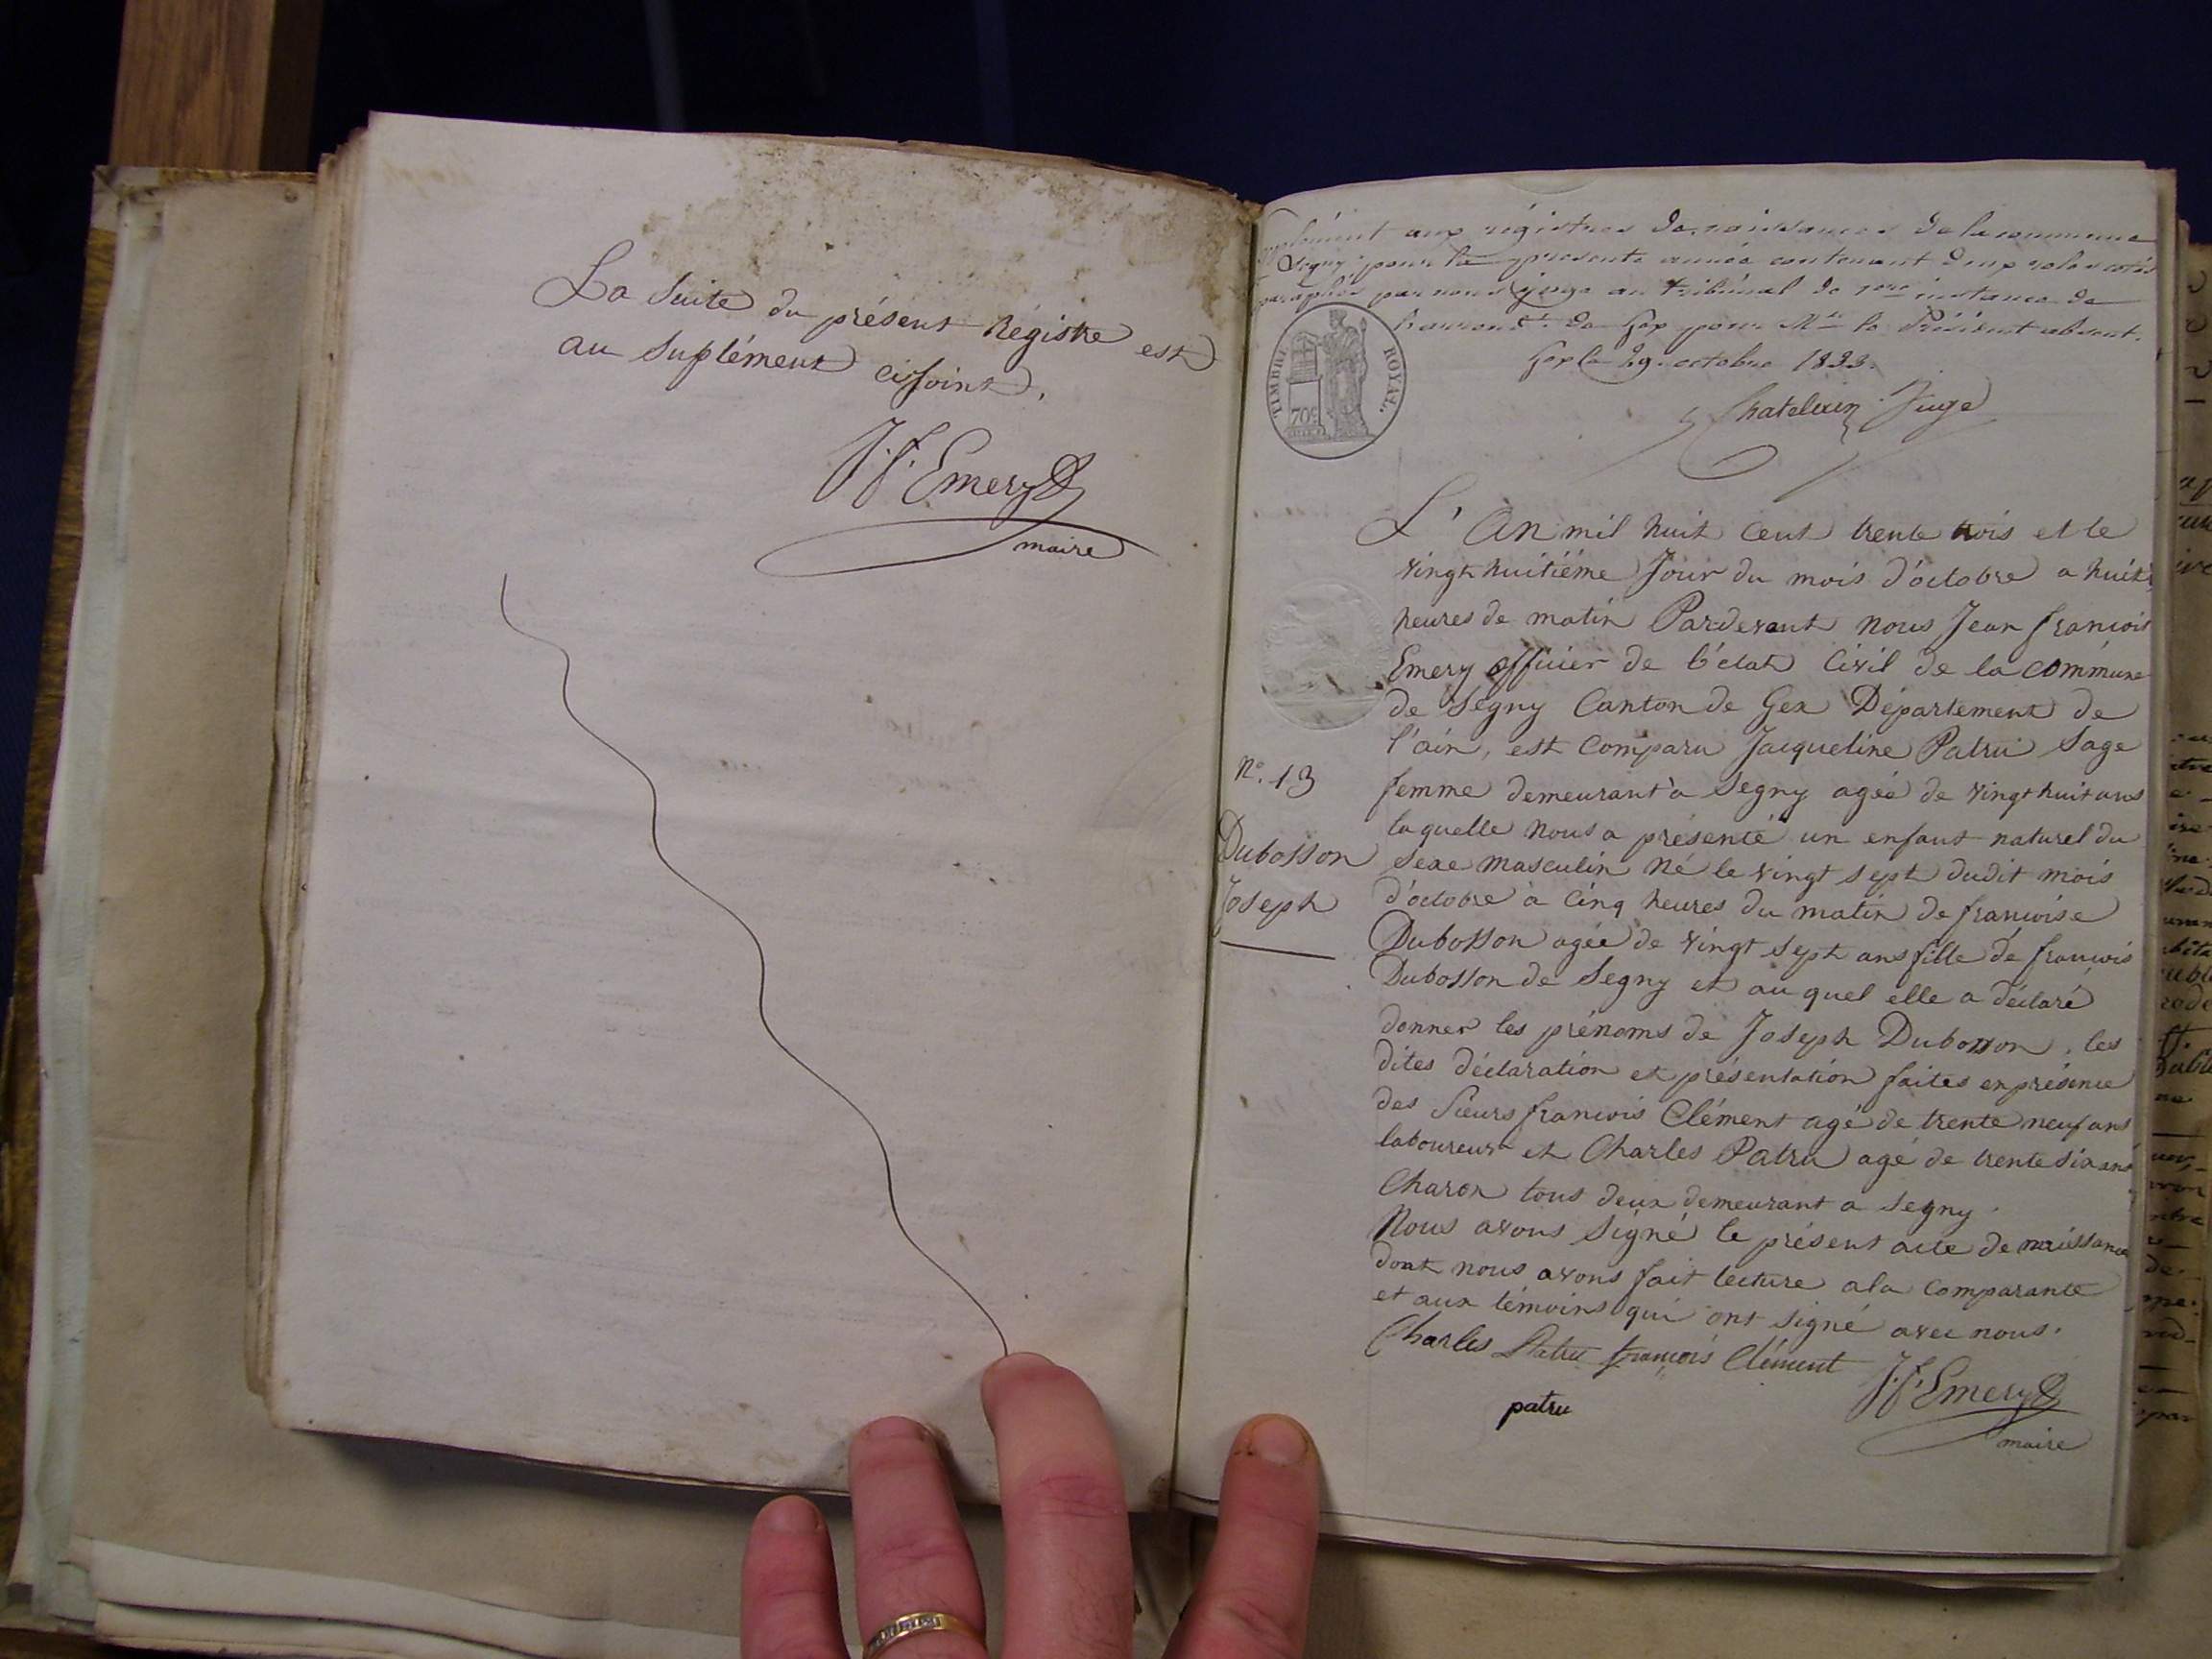 La Suite du présent Régistre est
au Suplément cijoint.
J. f. Emery
maire
aux régistres de naissances de la commune
Segny, pour la présente année contenant deux roles cotés
paraphés par nous juge au tribunal de 1ere instance de
de Gex pour Mr. le Président absent.
Gex le 29. octobre 1833.
Chatelain Juge
TIMBRE ROYAL.
70c
L'An mil huit cent trente trois et le
vingt huitiéme Jour du mois d'octobre a huit
heures de matin Pardevant nous Jean francois
Emery officier de l'état Civil de la commune
de Segny Canton de Gex Département de
l'ain, est Comparu Jacqueline Patru Sage
femme demeurant à Segny agée de vingt huit ans
laquelle nous a présenté un enfant naturel du
Sexe masculin né le vingt sept dudit mois
d'octobre à Cinq heures du matin de francoise
Dubosson agée de vingt sept ans fille de francois
Dubosson de Segny et au quel elle a déclaré
donner les prénoms de Joseph Dubosson, les
dites déclaration et présentation faites en présence
des Sieurs francois Clément agé de trente neuf ans
laboureur et Charles Patru agé de trente six ans
Charon tous deux demeurant a Segny.
Nous avons Signé le présent acte de naissance
dont nous avons fait lecture a la Comparante
et aux témoins qui ont signé avec nous.
Charles Patru françois Clément
J. f. Emery
patru
maire
No. 13
Dubosson
Joseph